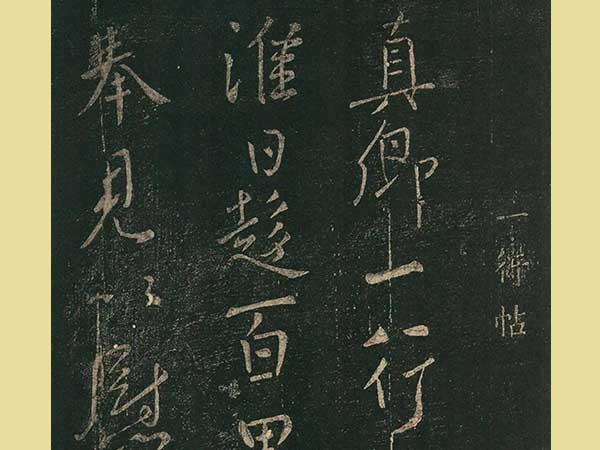 一帖
真卿一行
淮日趍百里
奉見慰